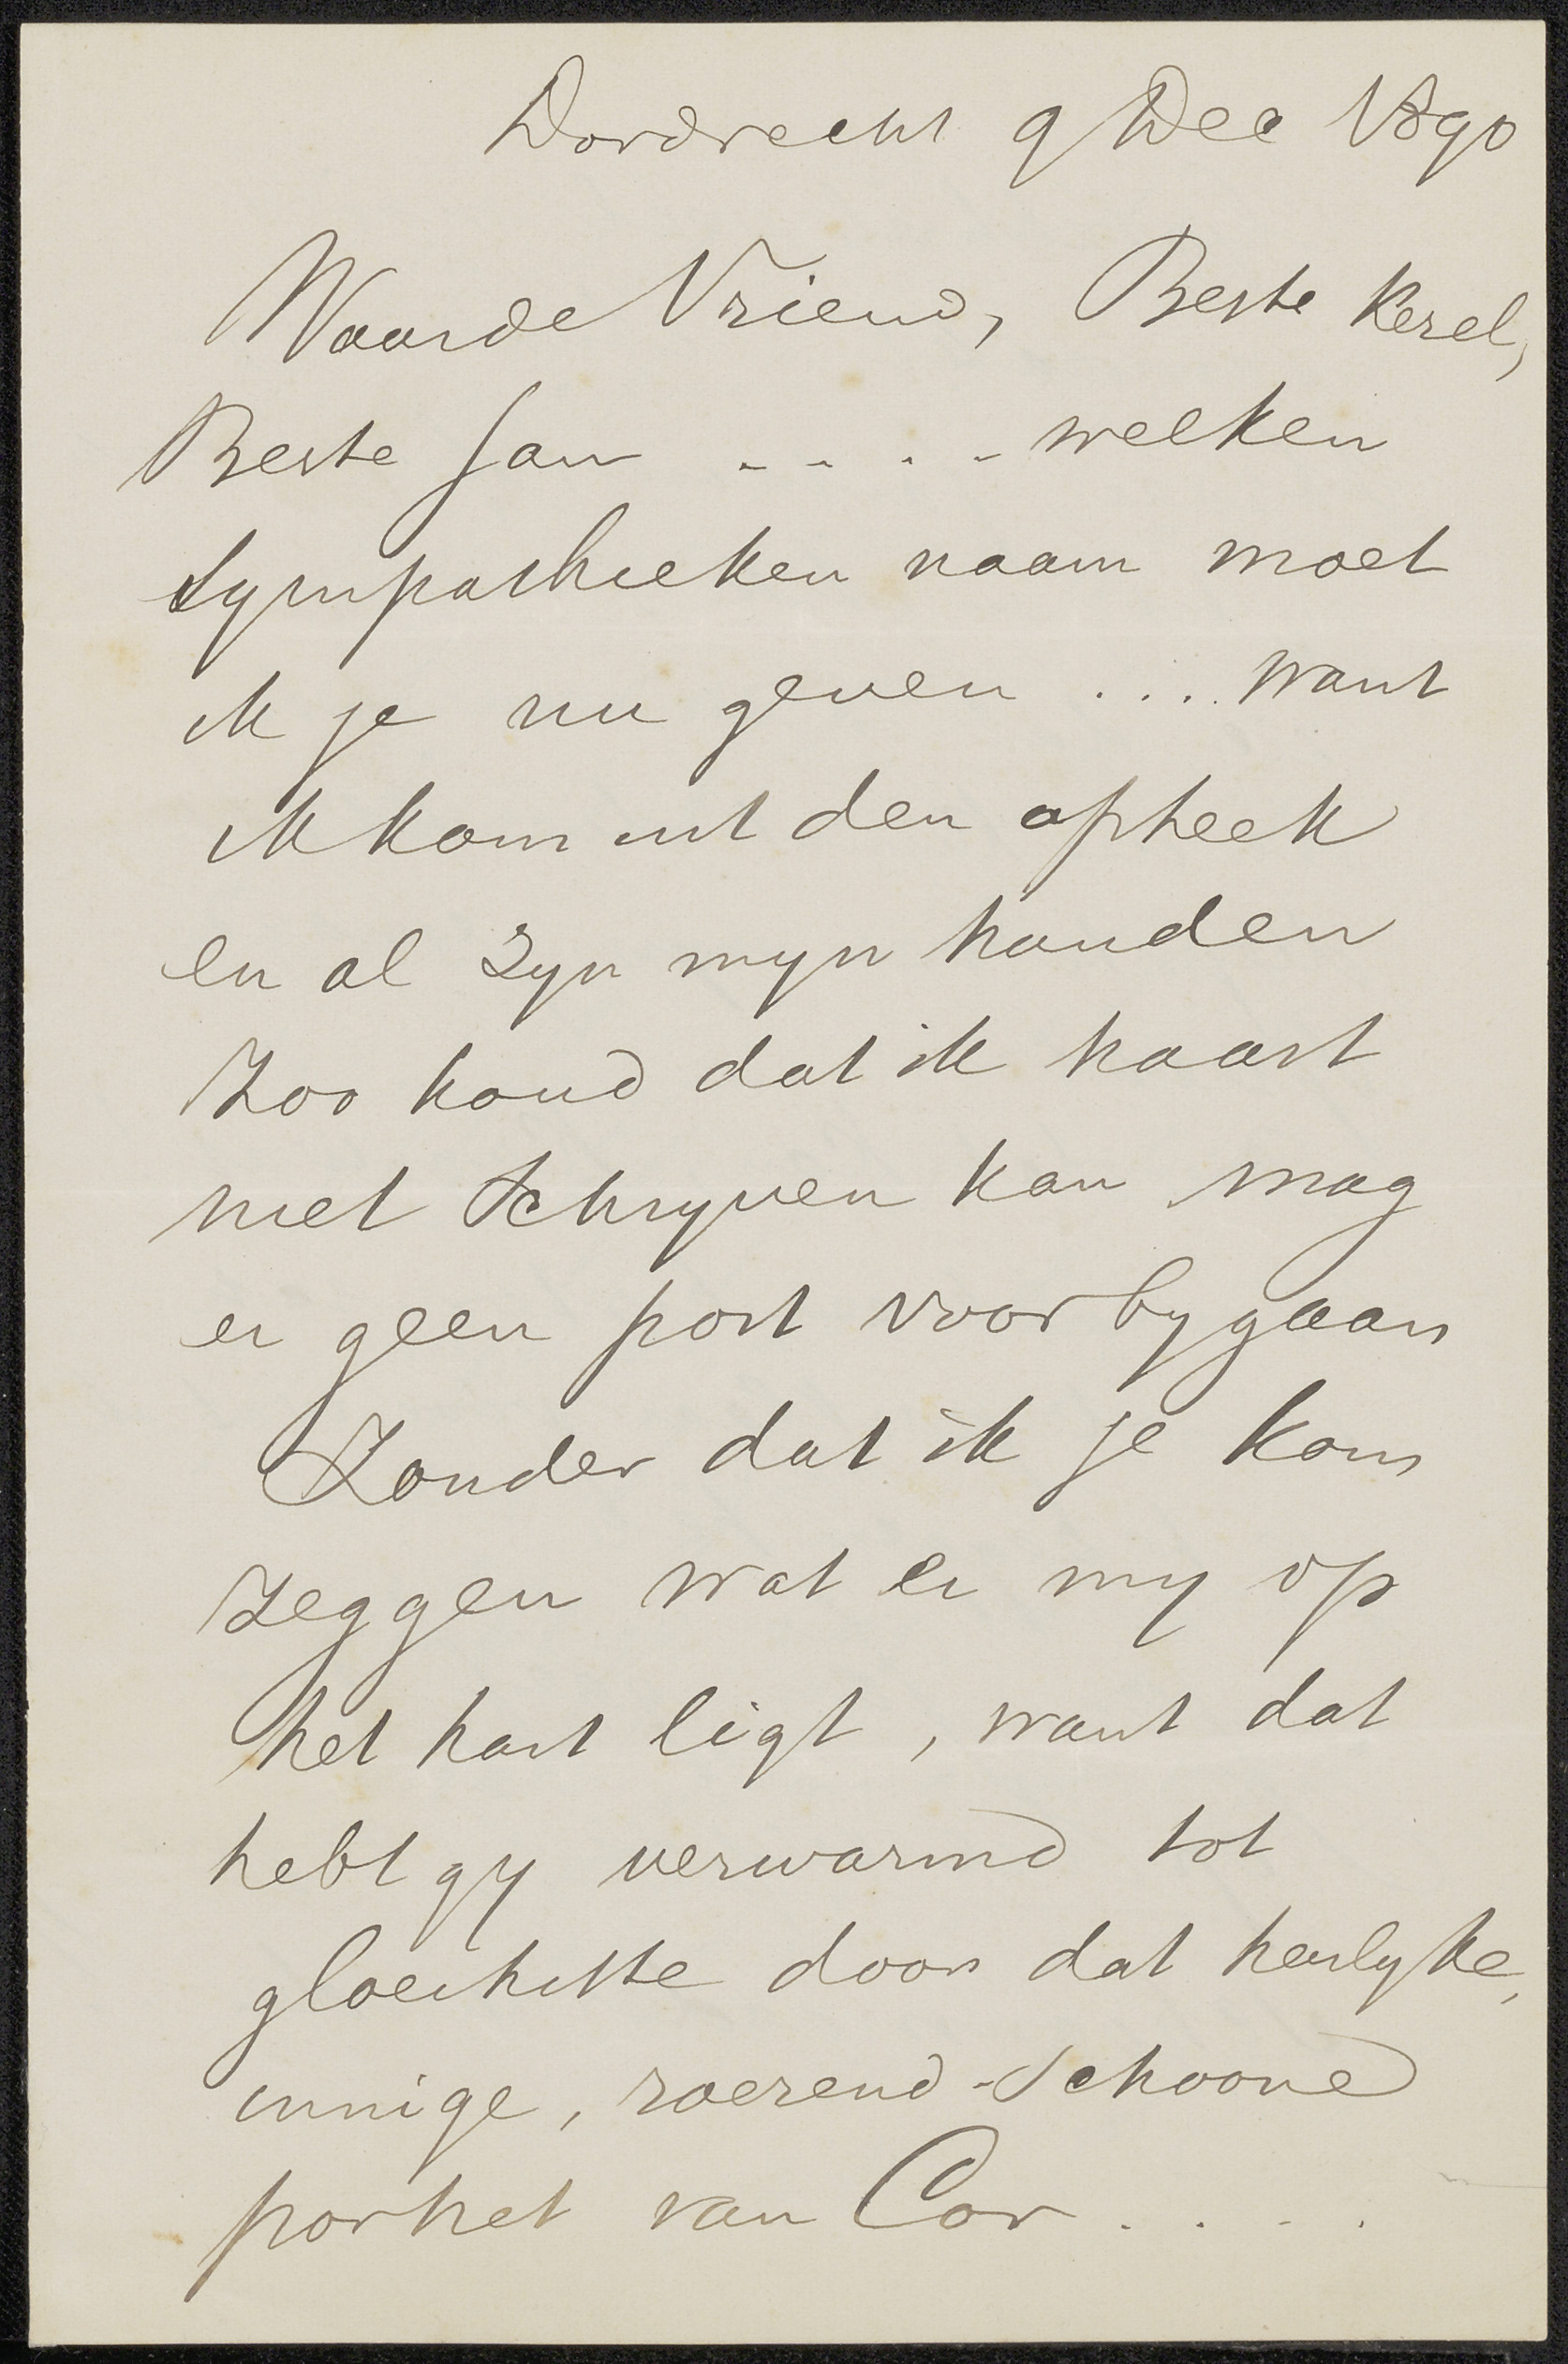 Dordrecht 9 Dec 1890
Waarde Vriend, Beste Kerel,
Beste Jan .... welken
sympathieken naam moet
ik je nu geven .... want
ik kom uit den apteek
en al zyn myn handen
zoo koud dat ik haast
niet schryven kan mag
er geen post voorbygaan
zonder dat ik je kom
zeggen wat er my op
het hart ligt, want dat
hebt gy verwarmd tot
gloeihitte door dat heerlyke,
innige, roerend-schoone
portret van Cor ....